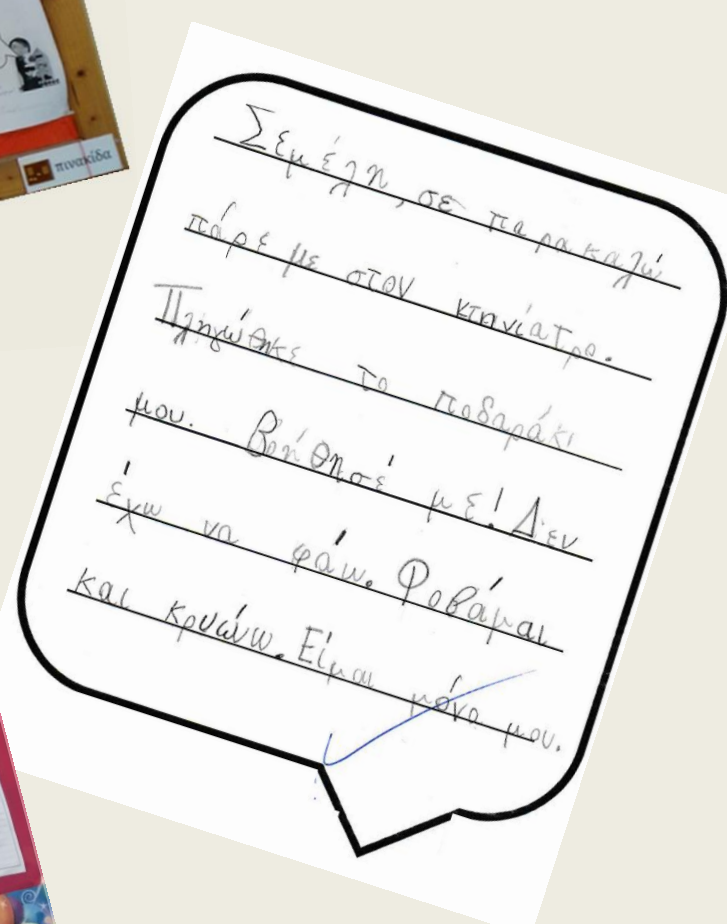 πινακίδα
Σεμέλη, σε παρακαλώ
πάρε με στον κτηνίατρο.
Πληγώθηκε το ποδαράκι
μου. Βοήθησέ με! Δεν
έχω να φάω. Φοβάμαι
και κρυώνω. Είμαι μόνο μου.